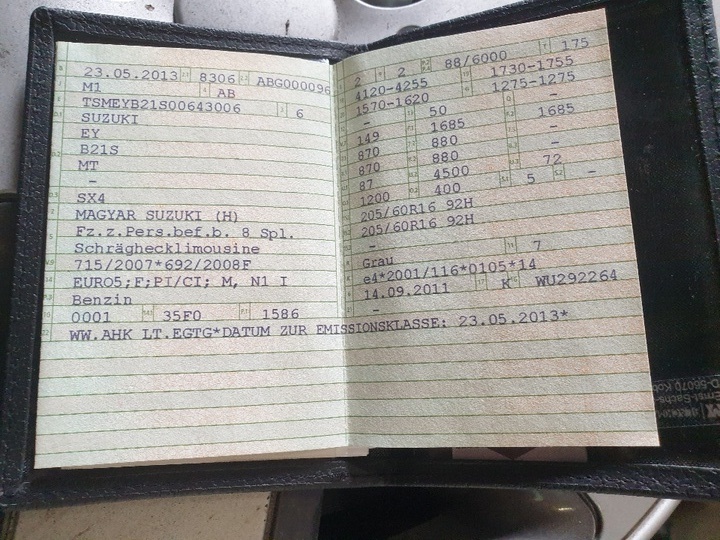 23.05.2013 8306 ABG000096
M1 AB
TSMEYB21S00643006 6
SUZUKI
EY
B21S
MT
–
SX4
MAGYAR SUZUKI (H)
Fz.z.Pers.bef.b. 8 Spl.
Schräghecklimousine
715/2007*692/2008F
EURO5;F;PI/CI; M, N1 I
Benzin
0001 35F0 1586
WW.AHK LT.EGTG*DATUM ZUR EMISSIONSKLASSE: 23.05.2013*
2 2 88/6000 175
4120-4255 1730-1755
1570-1620 1275-1275
– 50 –
149 1685 1685
870 880 –
870 880 –
87 4500 72
1200 400 5 –
205/60R16 92H
205/60R16 92H
–
Grau 7
e4*2001/116*0105*14
14.09.2011 K WU292264
–
Ernst-Sachs-
D-56070